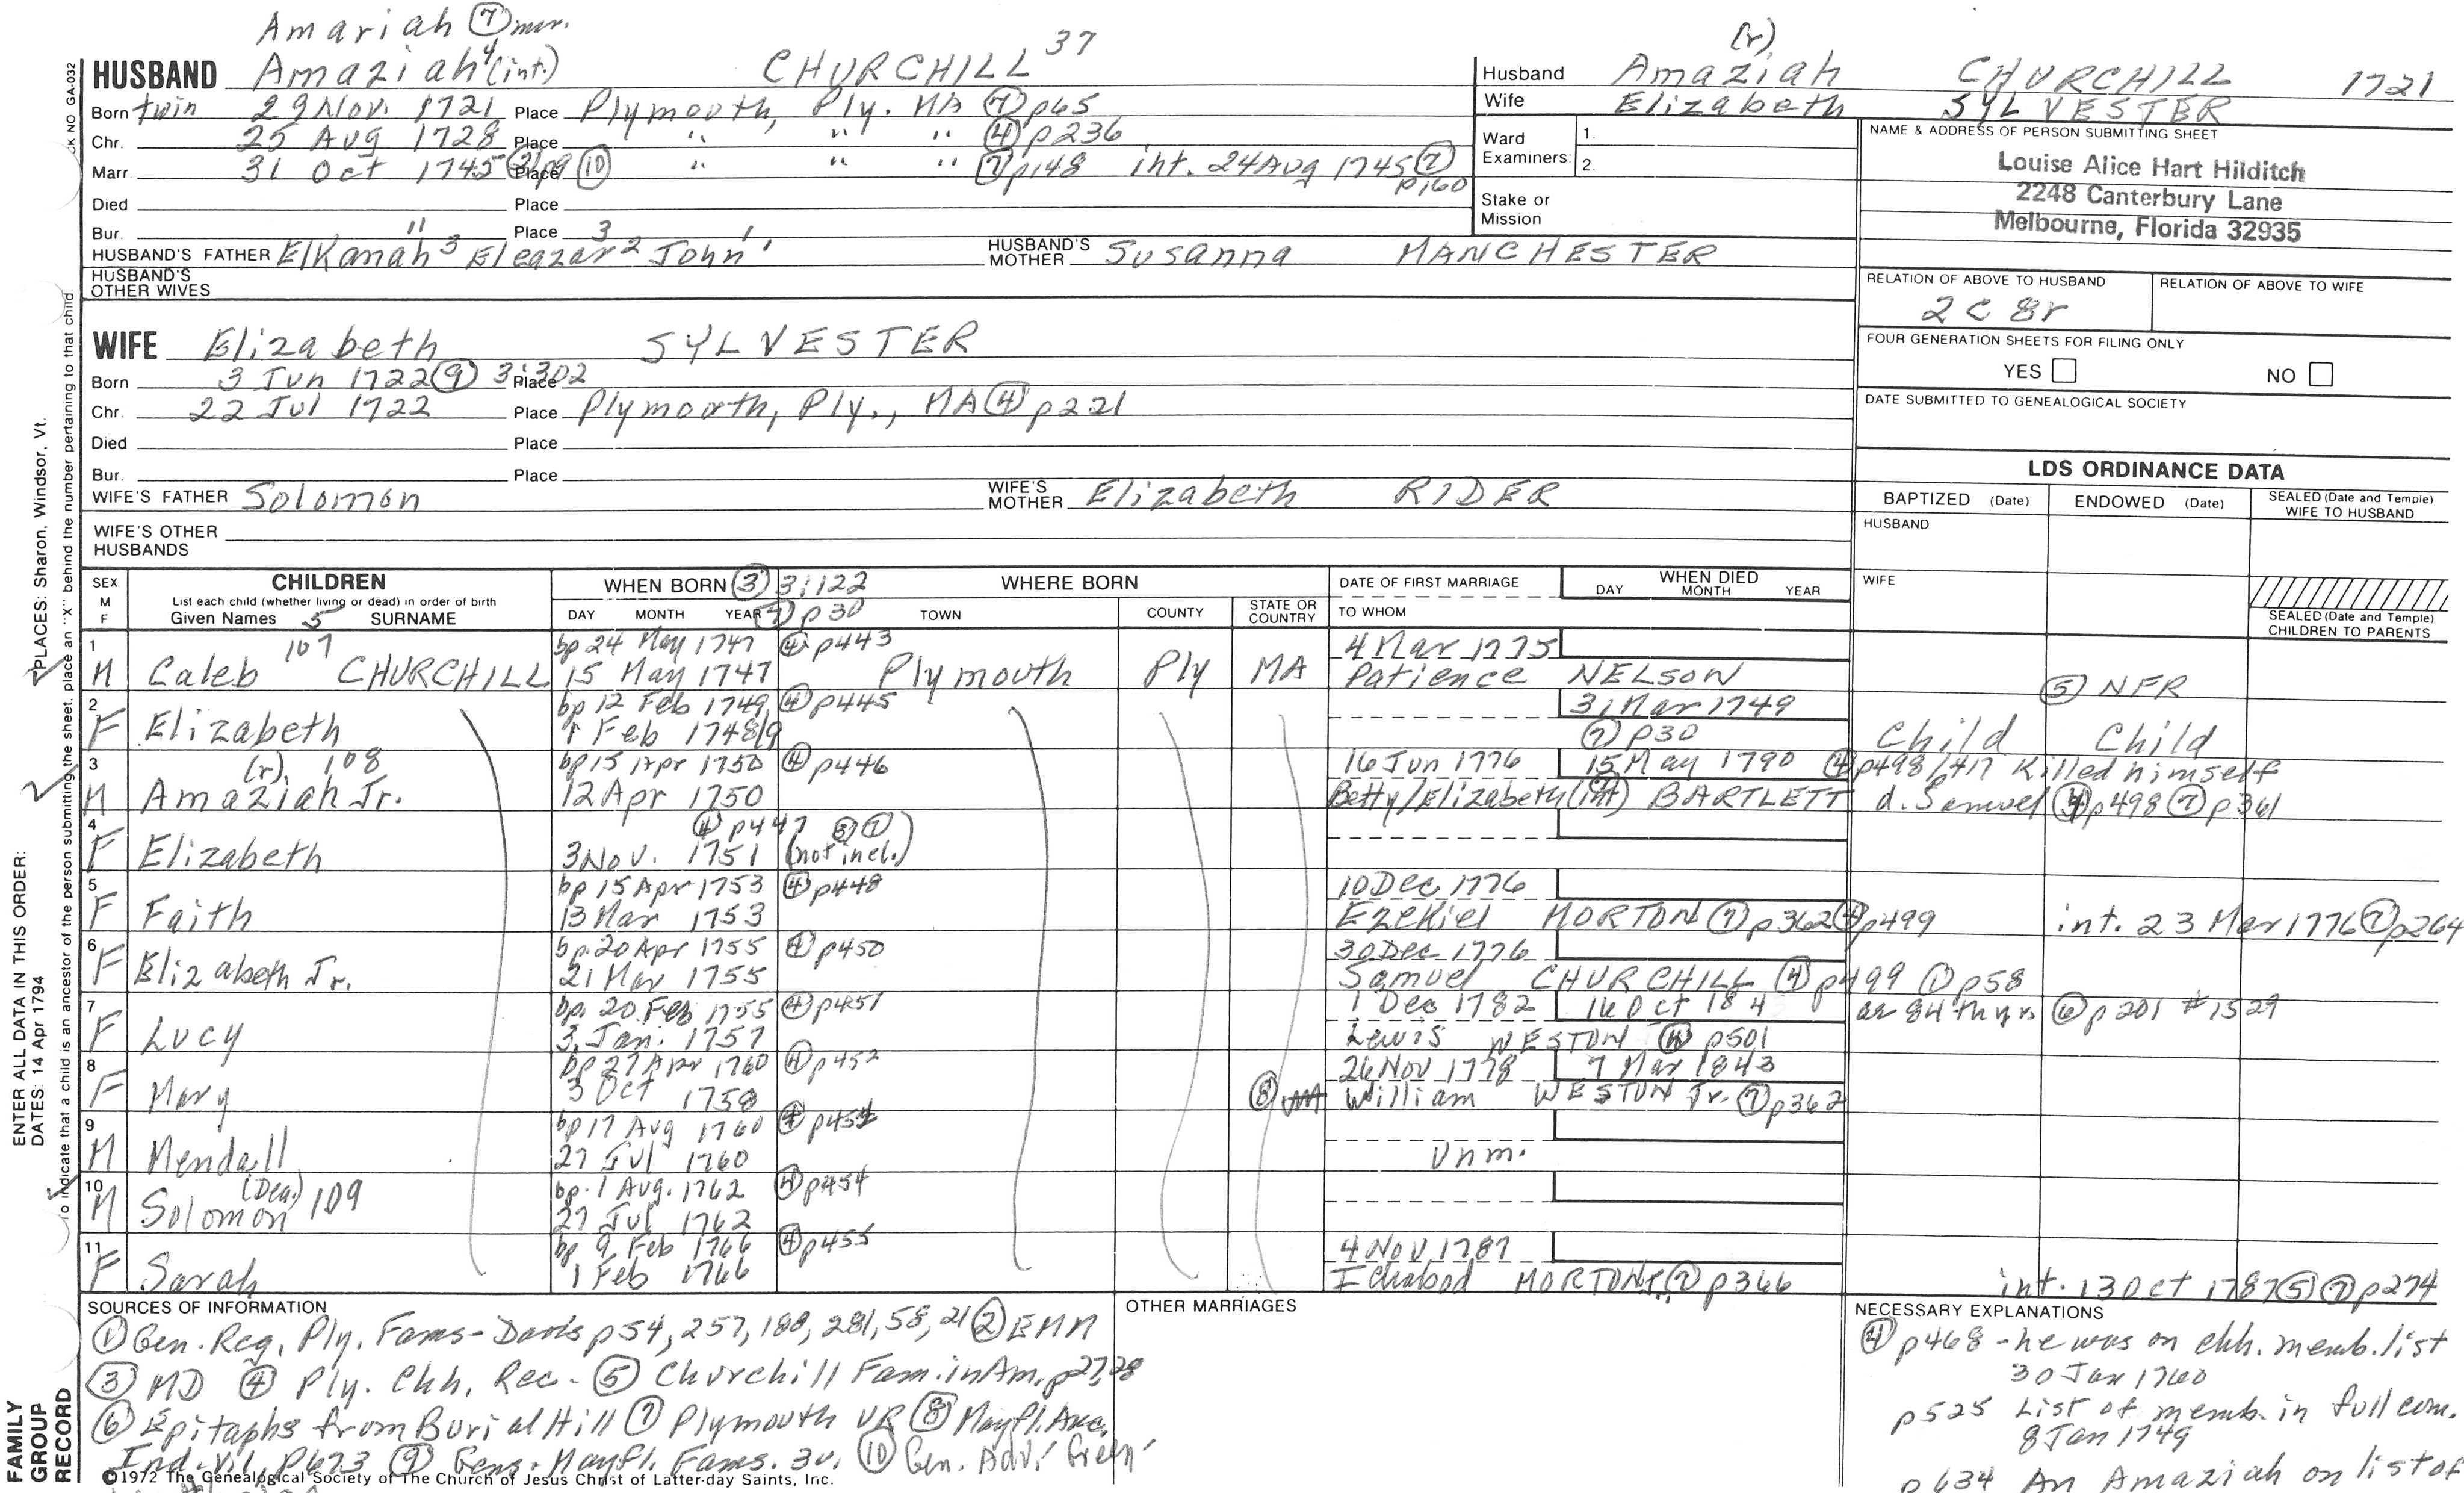 Amariah ⑦ mar.
HUSBAND Amaziah⁴ (int.) CHURCHILL 37
Born twin 29 Nov. 1721 Place Plymouth, Ply. MA ⑦ p65
Chr. 25 Aug 1728 Place " " " ④ p236
Marr. 31 Oct 1745 ② p9 ⑩ Place " " " ⑦ p148 int. 24 Aug 1745 ⑦ p160
Died Place
Bur. " Place 3 1
HUSBAND'S FATHER Elkanah³ Eleazar² John¹ HUSBAND'S MOTHER Susanna MANCHESTER
HUSBAND'S OTHER WIVES
(r)
Husband Amaziah CHURCHILL 1721
Wife Elizabeth SYLVESTER
Ward Examiners: 1.
2.
Stake or Mission
NAME & ADDRESS OF PERSON SUBMITTING SHEET
Louise Alice Hart Hilditch
2248 Canterbury Lane
Melbourne, Florida 32935
RELATION OF ABOVE TO HUSBAND RELATION OF ABOVE TO WIFE
2 C 8r
FOUR GENERATION SHEETS FOR FILING ONLY
YES NO
DATE SUBMITTED TO GENEALOGICAL SOCIETY
WIFE Elizabeth SYLVESTER
Born 3 Jun 1722 ⑨ 3:302 Place
Chr. 22 Jul 1722 Place Plymouth, Ply., MA ④ p221
Died Place
Bur. Place
WIFE'S FATHER Solomon WIFE'S MOTHER Elizabeth RIDER
WIFE'S OTHER HUSBANDS
LDS ORDINANCE DATA
BAPTIZED (Date) ENDOWED (Date) SEALED (Date and Temple) WIFE TO HUSBAND
HUSBAND
WIFE
SEALED (Date and Temple) CHILDREN TO PARENTS
SEX M F CHILDREN WHEN BORN ③ 3:122 WHERE BORN DATE OF FIRST MARRIAGE WHEN DIED
List each child (whether living or dead) in order of birth
Given Names 5 SURNAME DAY MONTH YEAR ⑦ p30 TOWN COUNTY STATE OR COUNTRY TO WHOM DAY MONTH YEAR
1 107 bp 24 May 1747 ④ p443 4 Mar 1775
M Caleb CHURCHILL 15 May 1747 Plymouth Ply MA Patience NELSON ⑤ NFR
2 bp 12 Feb 1749 ④ p445 31 Mar 1749
F Elizabeth 1 Feb 1748/9 ⑦ p30 Child Child
3 (r). 108 bp 15 Apr 1750 ④ p446 16 Jun 1776 15 May 1790 ④ p498/417 Killed himself
M Amaziah Jr. 12 Apr 1750 Betty/Elizabeth (int) BARTLETT d. Samuel ④ p498 ⑦ p361
4 ④ p447 ③ ⑦
F Elizabeth 3 Nov. 1751 (not incl.)
5 bp 15 Apr 1753 ④ p448 10 Dec 1776
F Faith 13 Mar 1753 Ezekiel MORTON ⑦ p362 ④ p499 int. 23 Mar 1776 ⑦ p264
6 bp 20 Apr 1755 ④ p450 30 Dec 1776
F Elizabeth Jr. 21 Mar 1755 Samuel CHURCHILL ④ p499 ① p58
7 bp. 20 Feb 1755 ④ p451 1 Dec 1782 16 Oct 184 ae 84th yr. ⑥ p201 #1529
F Lucy 3 Jan. 1757 Lewis WESTON ④ p501
8 bp 27 Apr 1760 ④ p452 26 Nov 1778 7 Mar 1843
F Mary 3 Oct 1758 ⑧ William WESTON Jr. ⑦ p362
9 bp 17 Aug 1760 ④ p454
M Mendall 27 Jul 1760 Unm.
10 (Dea.) bp. 1 Aug. 1762 ④ p454
M Solomon 109 27 Jul 1762
11 bp 9 Feb 1766 ④ p455 4 Nov 1787
F Sarah 1 Feb 1766 Ichabod MORTON ⑦ p366 int. 13 Oct 1787 ⑤ ⑦ p274
SOURCES OF INFORMATION
① Gen. Reg. Ply. Fams - Davis p54, 257, 188, 281, 58, 21 ② EMM
③ MD ④ Ply. Chh. Rec. ⑤ Churchill Fam. in Am. p27,28
⑥ Epitaphs from Burial Hill ⑦ Plymouth VR ⑧ Mayfl. Anc.
Ind. vi1, p673 ⑨ Gens. Mayfl. Fams. 3v. ⑩ Gen. Adv.
©1972 The Genealogical Society of The Church of Jesus Christ of Latter-day Saints, Inc.
OTHER MARRIAGES
NECESSARY EXPLANATIONS
④ p468 - he was on chh. memb. list
30 Jan 1760
p525 List of memb. in full com.
8 Jan 1749
p634 An Amaziah on list of
CK NO GA-032
PLACES: Sharon, Windsor, Vt.
ENTER ALL DATA IN THIS ORDER:
DATES: 14 Apr 1794
To indicate that a child is an ancestor of the person submitting the sheet, place an "X" behind the number pertaining to that child
FAMILY GROUP RECORD